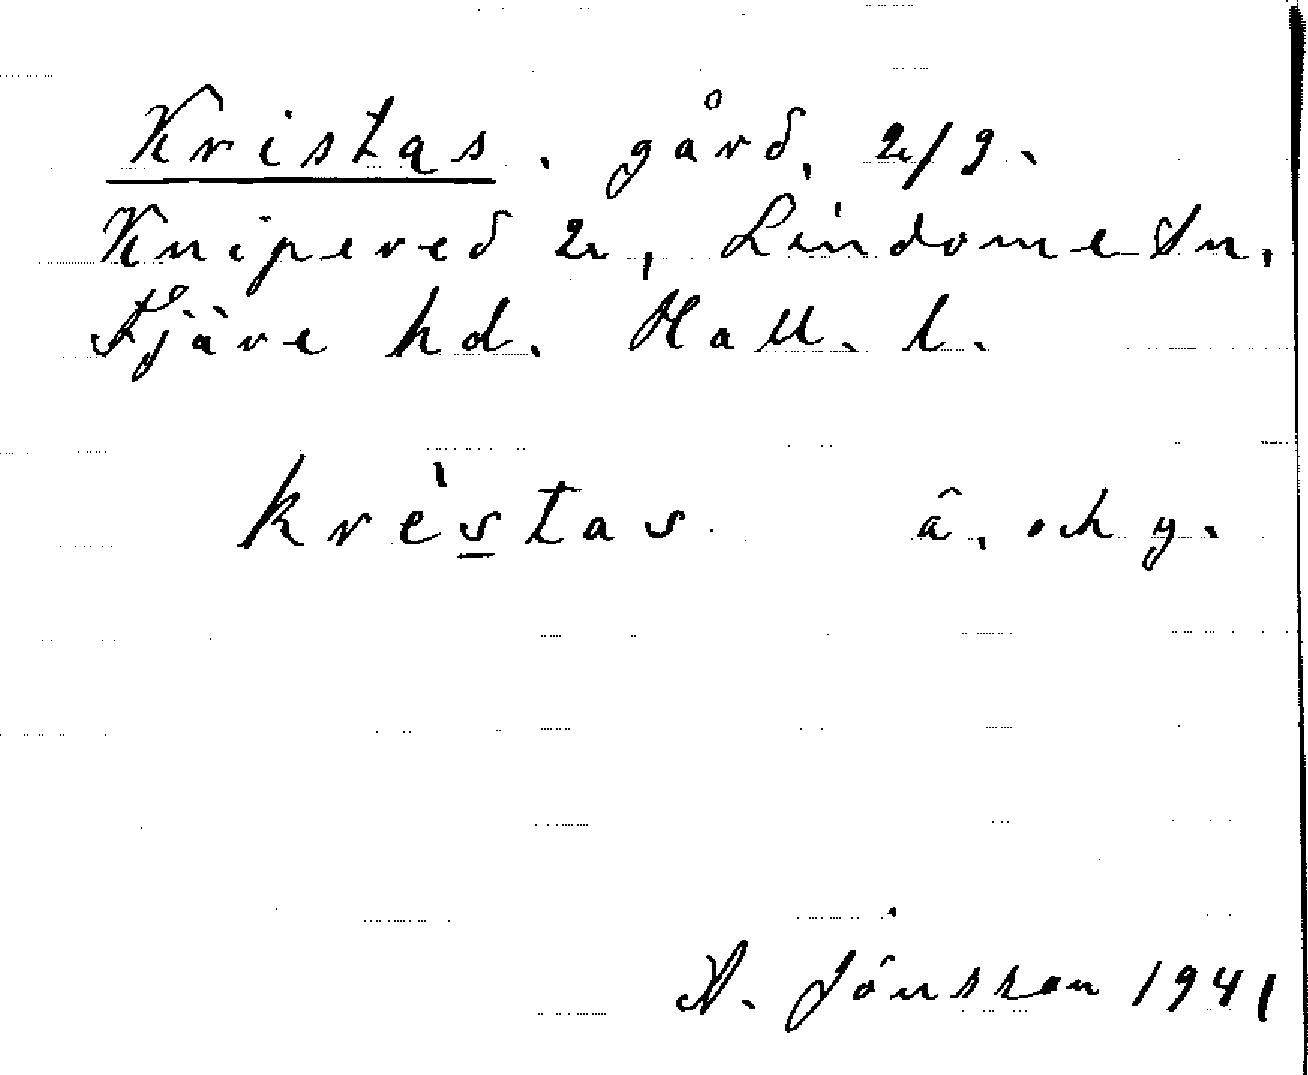 Kristas. gård, 2/9.
Knipered 2, Lindome sn,
Fjäre hd. Hall. l.
krèstas ä. och y.
A. Jönsson 1941